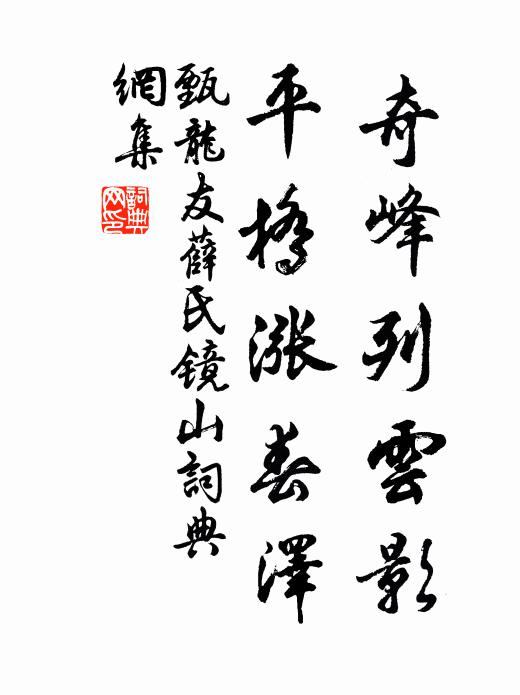 奇峰列雲影
平橋漲春澤
甄龍友薛氏鏡山詞典
網集
詞典
网印